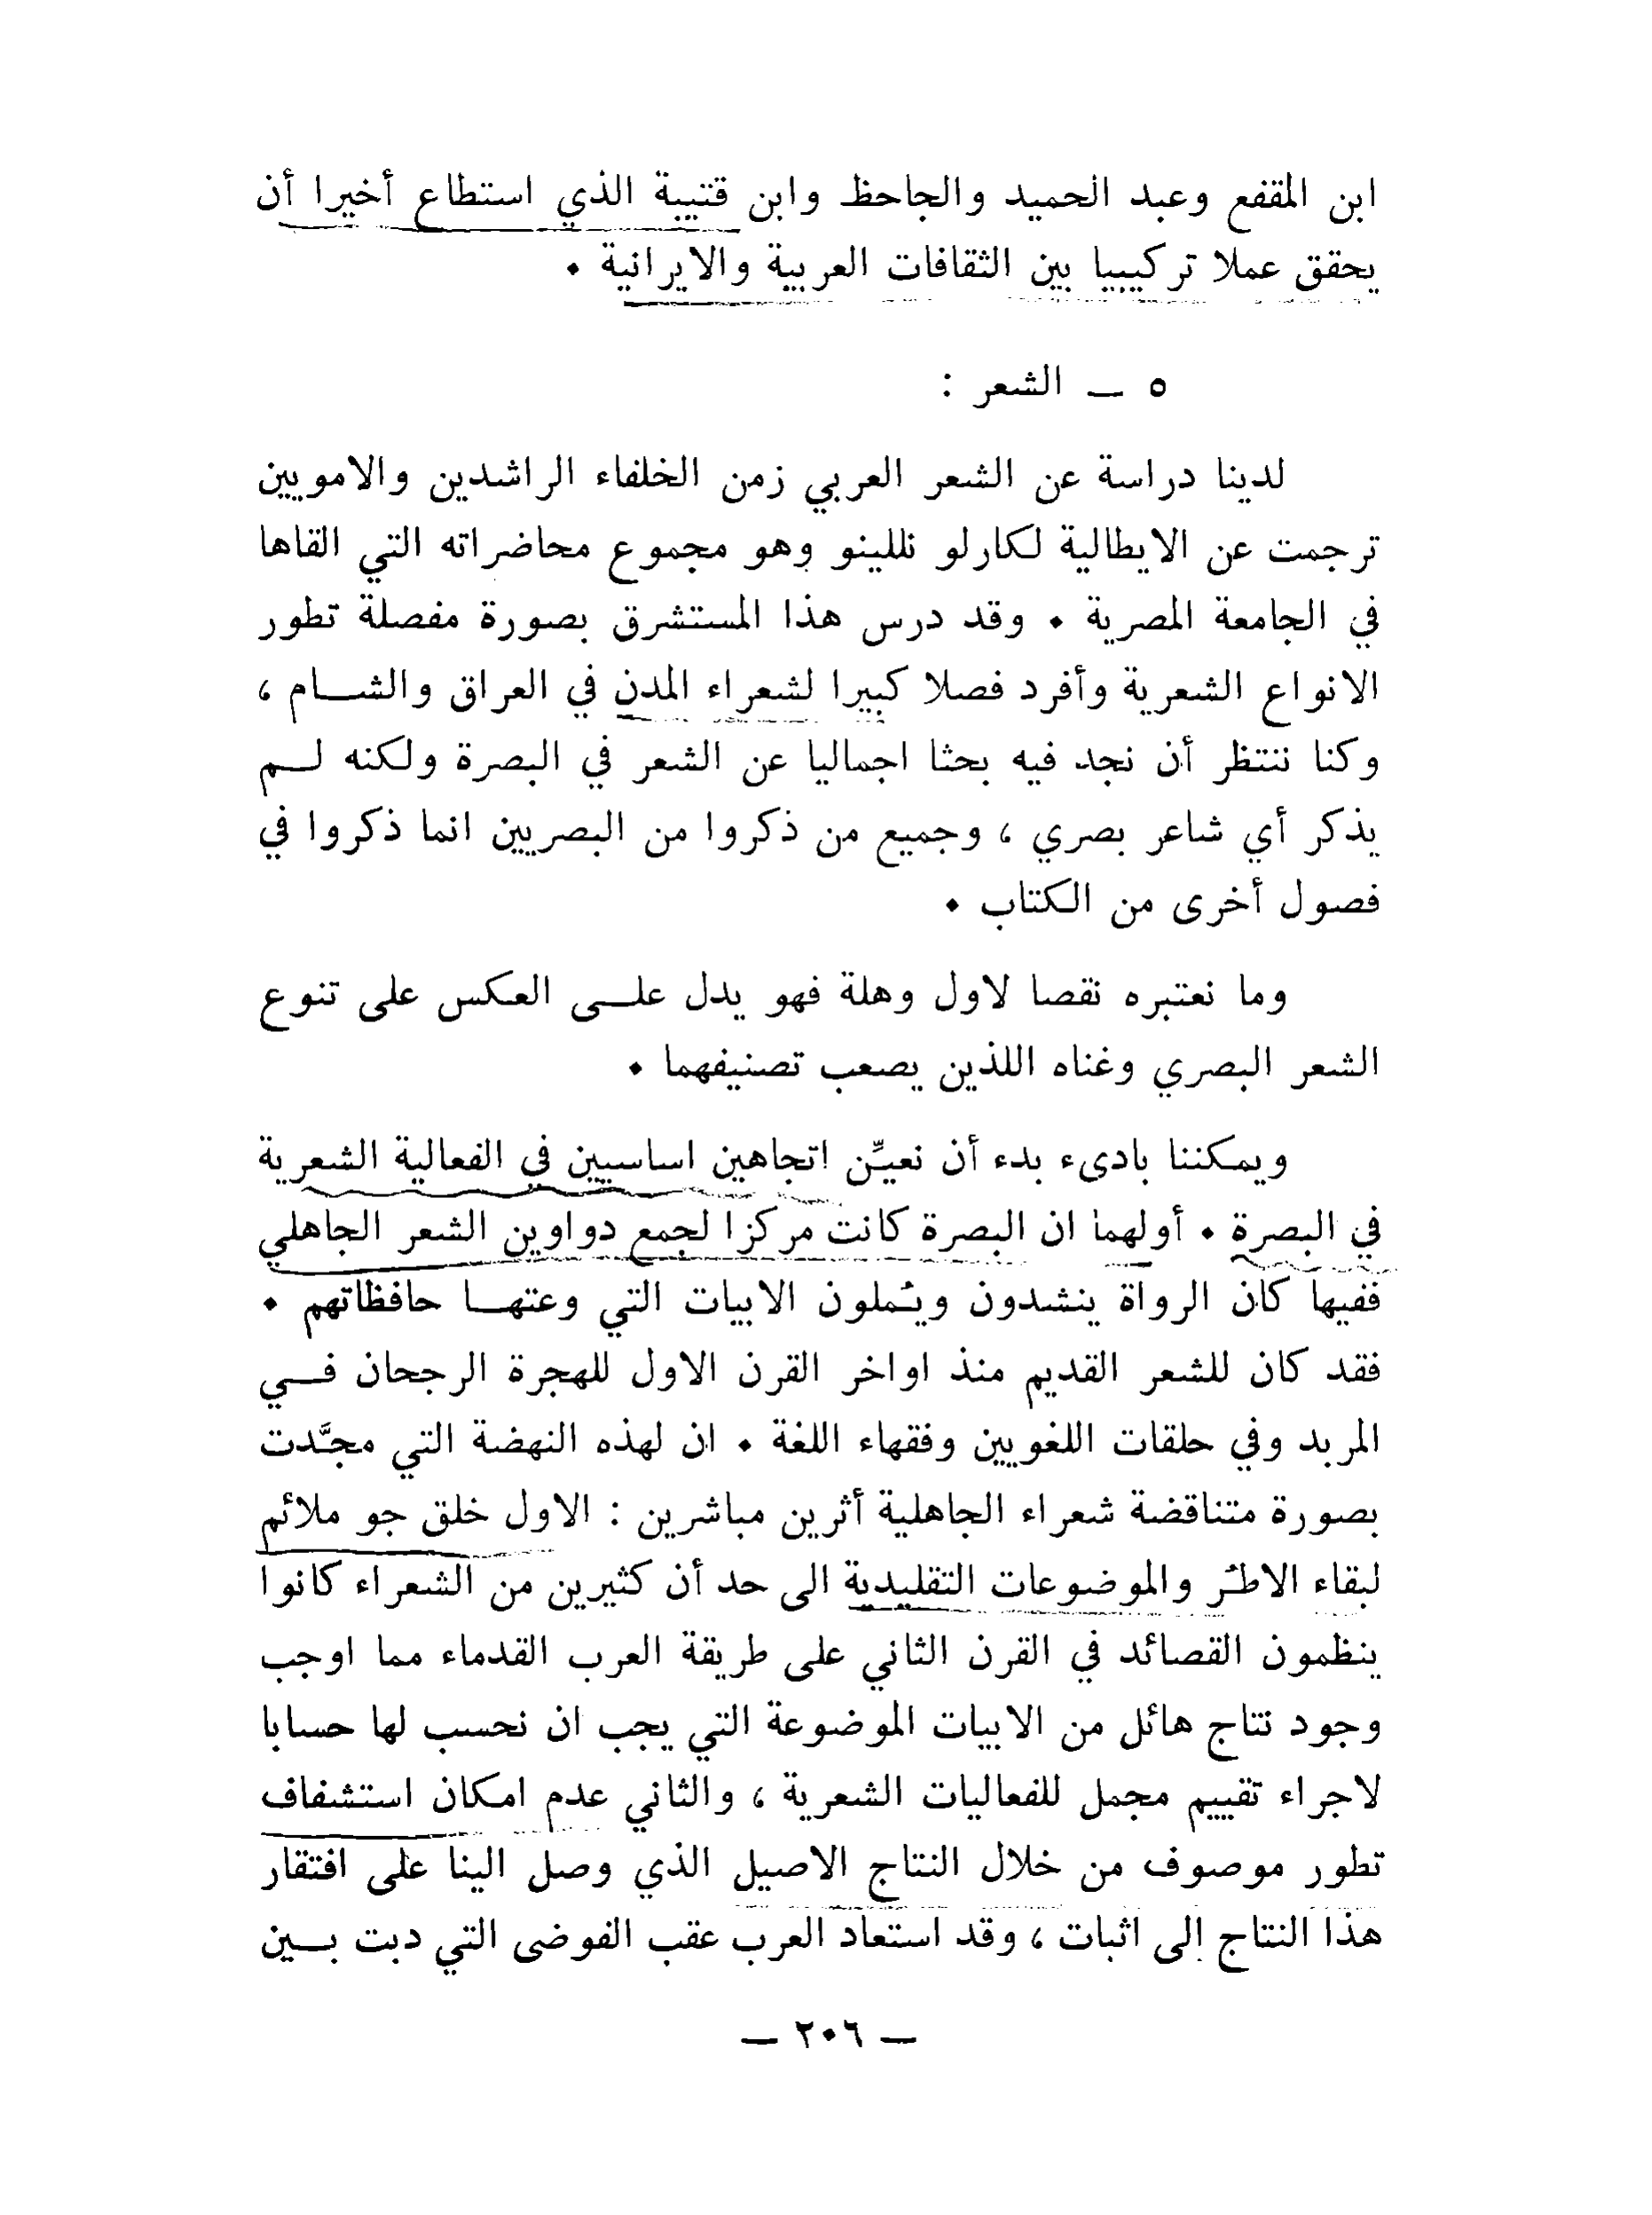 ابن المقفع وعبد الحميد والجاحظ وابن قتيبة الذي استطاع أخيرا أن
يحقق عملا تركيبيا بين الثقافات العربية والايرانية .
٥ ــ الشعر :
لدينا دراسة عن الشعر العربي زمن الخلفاء الراشدين والامويين
ترجمت عن الايطالية لكارلو نللينو وهو مجموع محاضراته التي القاها
في الجامعة المصرية . وقد درس هذا المستشرق بصورة مفصلة تطور
الانواع الشعرية وأفرد فصلا كبيرا لشعراء المدن في العراق والشـام ،
وكنا ننتظر أن نجد فيه بحثا اجماليا عن الشعر في البصرة ولكنه لـم
يذكر أي شاعر بصري ، وجميع من ذكروا من البصريين انما ذكروا في
فصول أخرى من الكتاب .
وما نعتبره نقصا لاول وهلة فهو يدل علـى العكس على تنوع
الشعر البصري وغناه اللذين يصعب تصنيفهما .
ويمكننا بادىء بدء أن نعيِّن اتجاهين اساسيين في الفعالية الشعرية
في البصرة . أولهما ان البصرة كانت مركزا لجمع دواوين الشعر الجاهلي
ففيها كان الرواة ينشدون ويُملون الابيات التي وعتهـا حافظاتهم .
فقد كان للشعر القديم منذ اواخر القرن الاول للهجرة الرجحان فـي
المربد وفي حلقات اللغويين وفقهاء اللغة . ان لهذه النهضة التي مجَّدت
بصورة متناقضة شعراء الجاهلية أثرين مباشرين : الاول خلق جو ملائم
لبقاء الاطُر والموضوعات التقليدية الى حد أن كثيرين من الشعراء كانوا
ينظمون القصائد في القرن الثاني على طريقة العرب القدماء مما اوجب
وجود نتاج هائل من الابيات الموضوعة التي يجب ان نحسب لها حسابا
لاجراء تقييم مجمل للفعاليات الشعرية ، والثاني عدم امكان استشفاف
تطور موصوف من خلال النتاج الاصيل الذي وصل الينا على افتقار
هذا النتاج إلى اثبات ، وقد استعاد العرب عقب الفوضى التي دبت بـين
ــ ٢٠٦ ــ